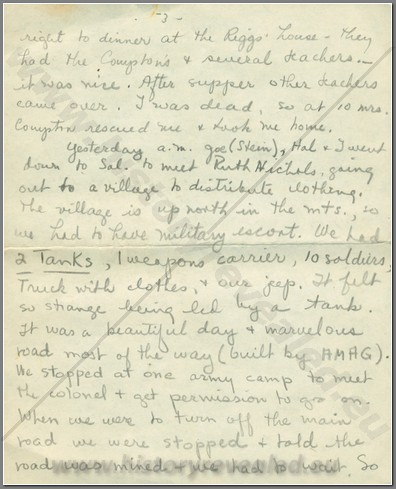 -3-
right to dinner at the Riggs' House - they
had the Compton's & several teachers -
it was nice. After supper other teachers
came over. I was dead, so at 10 Mrs.
Compton rescued me & took me home.
Yesterday a.m. Joe (Stein), Hal & I went
down to Sal. to meet Ruth Nichols, going
out to a village to distribute clothing.
The village is up north in the mts., so
we had to have military escort. We had
2 Tanks, 1 weapons carrier, 10 soldiers,
Truck with clothes, & our jeep. It felt
so strange being led by a tank.
It was a beautiful day & marvelous
road most of the way (built by AMAG).
We stopped at one army camp to meet
the colonel & get permission to go on.
When we were to turn off the main
road we were stopped & told the
road was mined - we had to wait. So
www.historyrevealed.eu